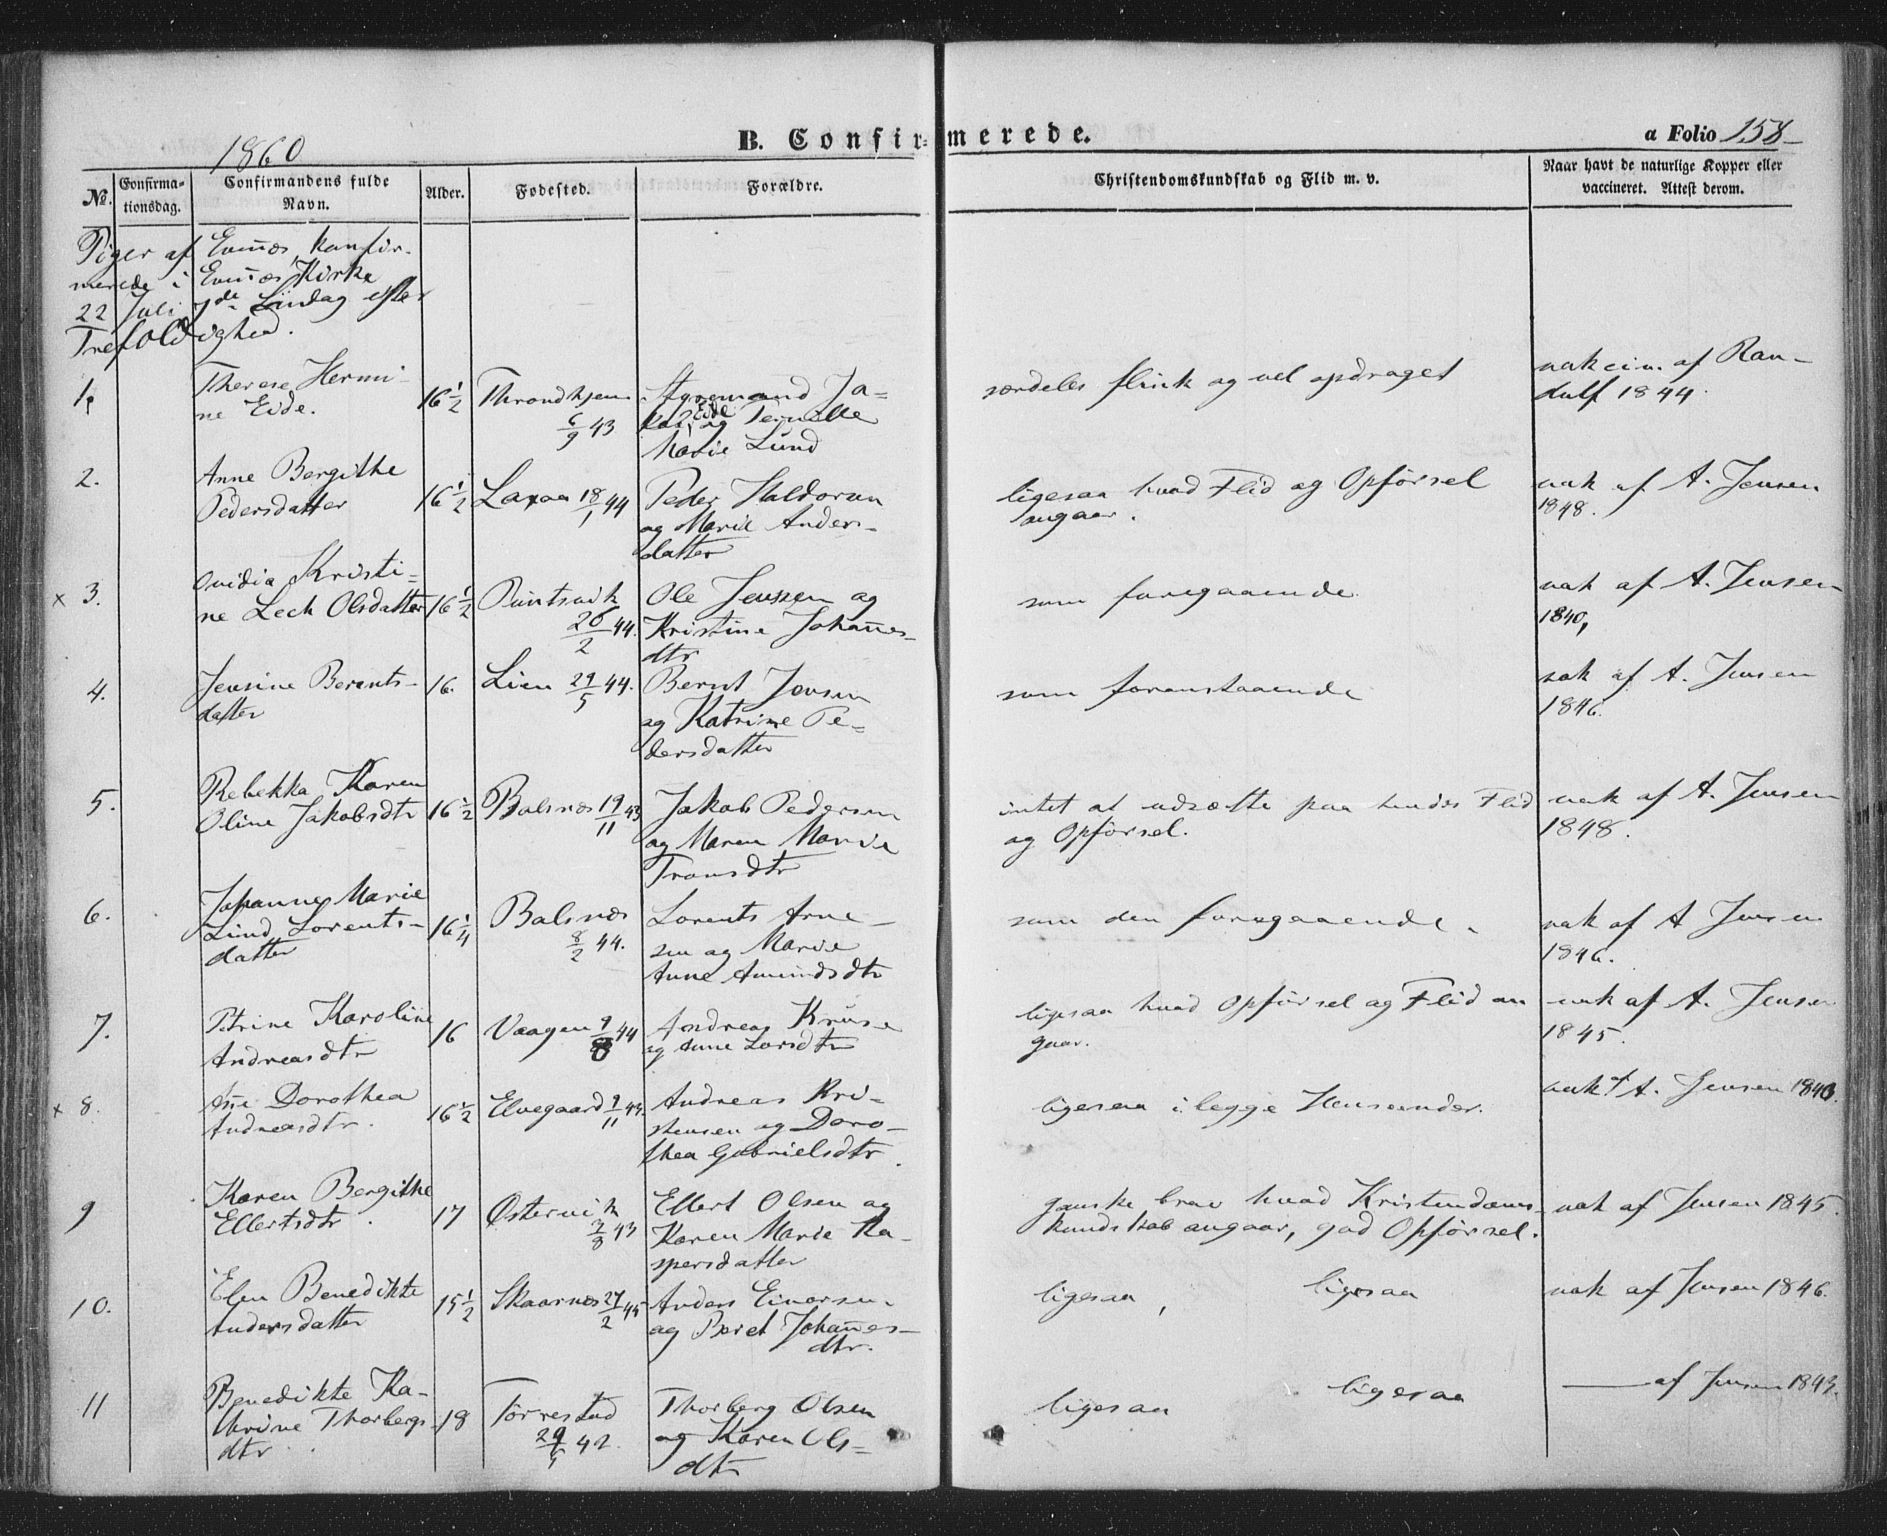 1860
B. Confirmerede.
a Folio 158
No.
Confirmationsdag.
Confirmandens fulde Navn.
Alder.
Fødested.
Forældre.
Christendomskundskab og Flid m. v.
Naar havt de naturlige Kopper eller vaccineret. Attest derom.
Piger af Evenæs, konfir-
merede i Evenæs Kirke
22 Juli 7de Søndag efter
Trefoldighed.
1. Therese Hermi- 16 1/2 Throndhjem Styremand Ja- særdeles flink og vel opdraget vakcin. af Ran-
ne Eide. 6/9 43 kob Eide og Pernille dulf 1844.
Marie Lund
2. Anne Bergithe 16 1/2 Laxaa 18/1 44 Peder Haldorsen ligesaa hvad Flid og Opførsel vak af A. Jensen
Pedersdatter og Marie Anders- angaar. 1848.
datter
x 3. Ovidia Kristi- 16 1/2 Puntsvik Ole Jenssen og som foregaaende. vak af A. Jensen
ne Lech Olsdatter 26/2 44. Kristine Johannes- 1840,
dtr
4. Jensine Berents- 16. Lien 29/5 44. Bernt Jensen som foranstaaende vak af A. Jensen
datter og Katrine Pe- 1846.
dersdatter
5. Rebekka Karen 16 1/2 Balsnes 19/11 43 Jakob Pedersen intet at udsætte paa hendes Flid vak af A. Jensen
Oline Jakobsdtr og Maren Marie og Opførsel. 1848.
Transdtr
6. Johanne Marie 16 1/4 Balsnæs Lorents Arne- som den foregaaende. vak af A Jensen
Lind Lorents- 8/2 44. sen og Marie 1846.
datter Anne Amundsdtr
7. Petrine Karoline 16 Vaagen 9/8 44 Andreas Kruse ligesaa hvad Opførsel og Flid an- vak af A. Jensen
Andreasdtr og Anne Larsdtr gaar. 1845.
x 8. Ane Dorothea 16 1/2 Elvegaard 9/11 43 Andreas Kri- ligesaa i begge Henseender. vak af A. Jensen 1843.
Andreasdtr. stensen og Doro-
thea Gabrielsdtr.
9 Karen Bergithe 17 Østervik Ellert Olsen og ganske brav hvad Kristendoms- vak af Jensen 1845.
Ellertsdtr. 3/8 43 Karen Marie Ka- kundskab angaar, god Opførsel.
spersdatter
10. Elen Benedikte 15 1/2 Skaarnes 27/2 45 Anders Einarsen ligesaa, ligesaa vak af Jensen 1846.
Andersdatter og Beret Johannes-
dtr.
11 Benedikte Ka- 18 Tørrestad Thorberg Olsen ligesaa ligesaa — af Jensen 1843.
thrine Thorbergs- 29/5 42. og Karen Ols-
dtr. dtr